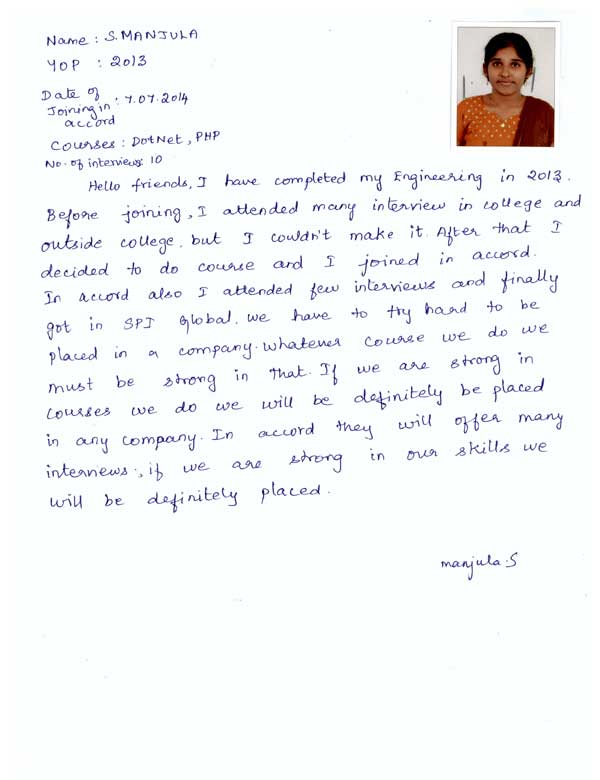 Name : S. MANJULA
YOP : 2013
Date of
Joining in : 7.07.2014
accord
Courses : DotNet, PHP
No. of interviews: 10
Hello friends, I have completed my Engineering in 2013.
Before joining, I attended many interview in college and
outside college, but I couldn't make it. After that I
decided to do course and I joined in accord.
In accord also I attended few interviews and finally
got in SPI Global. we have to try hard to be
placed in a company. whatever course we do we
must be strong in that. If we are strong in
courses we do we will be definitely be placed
in any company. In accord they will offer many
interviews, if we are strong in our skills we
will be definitely placed.
manjula.S